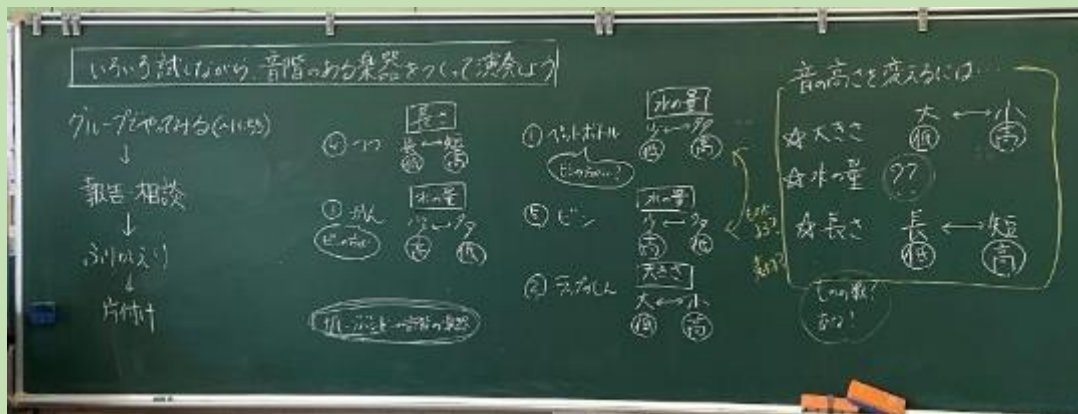 いろいろ試しながら、音階のある楽器をつくって演奏しよう
グループでやってみる
↓
報告・相談
↓
ふりかえり
↓
片付け
④ つつ
長さ
長 ↔ 短
低 高
③ かん
水の量
少 ↔ 多
高 低
① ペットボトル
水の量
少 ↔ 多
低 高
⑤ ビン
水の量
少 ↔ 多
高 低
② ラップのしん
大きさ
大 ↔ 小
低 高
音の高さを変えるには…
☆ 大きさ 大 ↔ 小
低 高
☆ 水の量 ??
☆ 長さ 長 ↔ 短
低 高